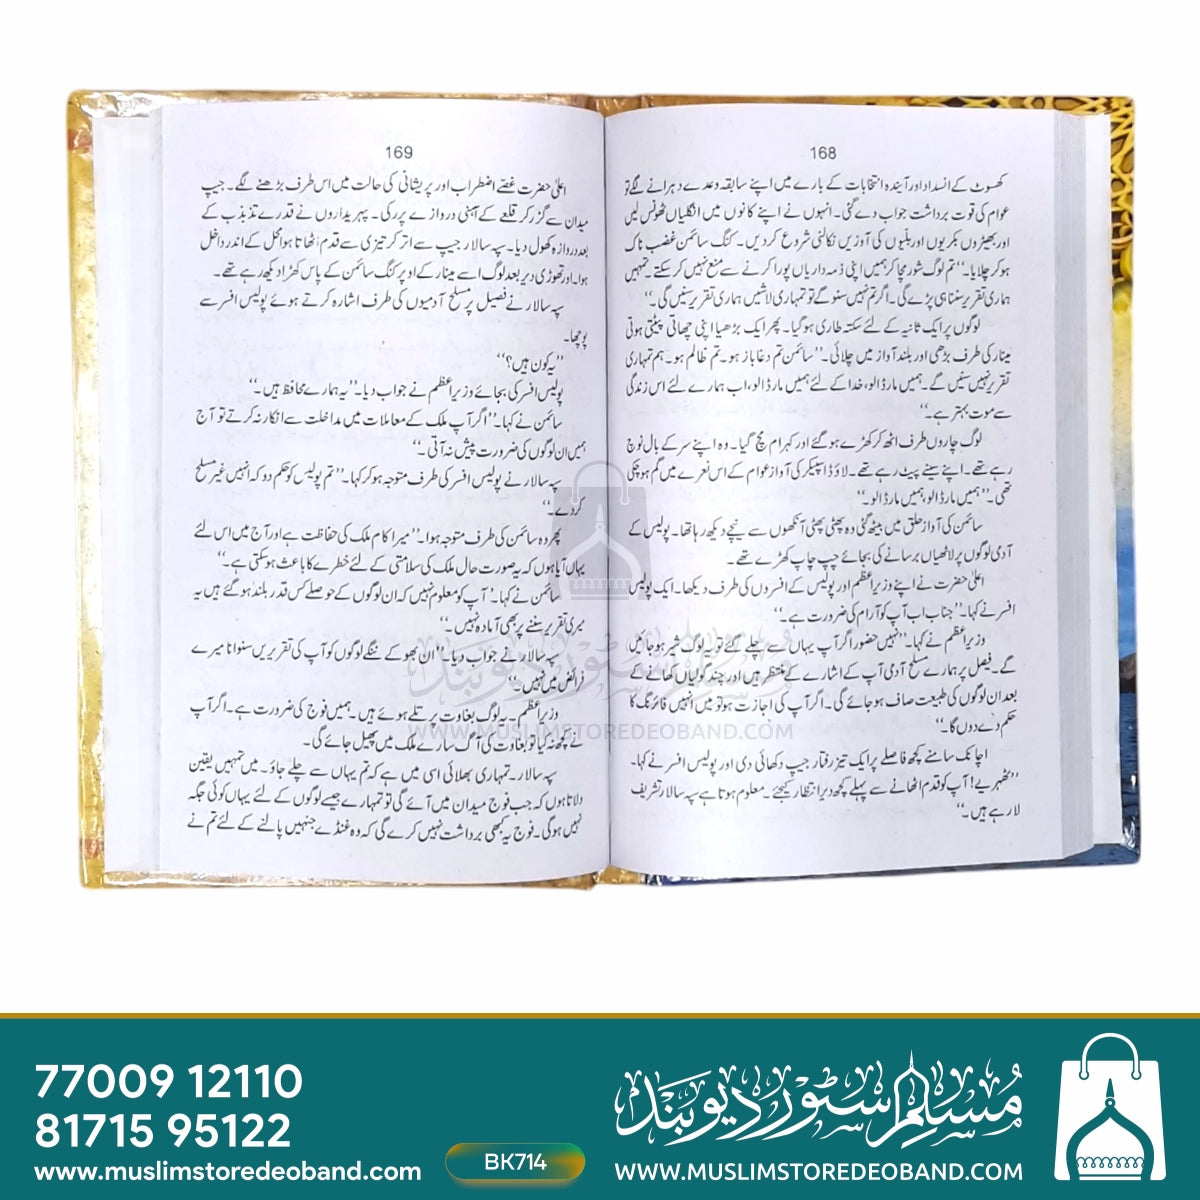 168
کھسوٹ کے انسداد اور آیندہ انتخابات کے بارے میں اپنے سابقہ وعدے دہرانے لگے تو
عوام کی قوت برداشت جواب دے گئی۔ انہوں نے اپنے کانوں میں انگلیاں ٹھونس لیں
اور بھیڑوں بکریوں اور بلیوں کی آوازیں نکالنی شروع کر دیں۔ کنگ سائمن غضب ناک
ہو کر چلایا۔ ‘‘تم لوگ شور مچا کر ہمیں اپنی ذمہ داریاں پورا کرنے سے منع نہیں کر سکتے۔ تمہیں
ہماری تقریر سننا ہی پڑے گی۔ اگر تم نہیں سنو گے تو تمہاری لاشیں ہماری تقریر سنیں گی۔‘‘
لوگوں پر ایک ثانیہ کے لئے سکتہ طاری ہو گیا۔ پھر ایک بڑھیا اپنی چھاتی پیٹتی ہوئی
مینار کی طرف بڑھی اور بلند آواز میں چلائی۔ ‘‘سائمن تم دغاباز ہو۔ تم ظالم ہو۔ ہم تمہاری
تقریر نہیں سنیں گے۔ ہمیں مار ڈالو، خدا کے لئے ہمیں مار ڈالو، اب ہمارے لئے اس زندگی
سے موت بہتر ہے۔‘‘
لوگ چاروں طرف اٹھ کر کھڑے ہو گئے اور کہرام مچ گیا۔ وہ اپنے سر کے بال نوچ
رہے تھے۔ اپنے سینے پیٹ رہے تھے۔ لاؤڈ اسپیکر کی آواز عوام کے اس نعرے میں گم ہو چکی
تھی۔ ‘‘ہمیں مار ڈالو، ہمیں مار ڈالو۔‘‘
سائمن کی آواز حلق میں بیٹھ گئی وہ پھٹی پھٹی آنکھوں سے نیچے دیکھ رہا تھا۔ پولیس کے
آدمی لوگوں پر لاٹھیاں برسانے کی بجائے چپ چاپ کھڑے تھے۔
اعلیٰ حضرت نے اپنے وزیراعظم اور پولیس کے افسروں کی طرف دیکھا۔ ایک پولیس
افسر نے کہا۔ ‘‘جناب اب آپ کو آرام کی ضرورت ہے۔‘‘
وزیراعظم نے کہا۔ ‘‘نہیں حضور اگر آپ یہاں سے چلے گئے تو یہ لوگ شیر ہو جائیں
گے۔ فصیل پر ہمارے مسلح آدمی آپ کے اشارے کے منتظر ہیں اور چند گولیاں کھانے کے
بعد ان لوگوں کی طبیعت صاف ہو جائے گی۔ اگر آپ کی اجازت ہو تو میں انہیں فائرنگ کا
حکم دے دوں گا۔‘‘
اچانک سامنے کچھ فاصلے پر ایک تیز رفتار جیپ دکھائی دی اور پولیس افسر نے کہا۔
‘‘ٹھہریے! آپ کو قدم اٹھانے سے پہلے کچھ دیر انتظار کیجئے۔ معلوم ہوتا ہے سپہ سالار تشریف
لا رہے ہیں۔‘‘
169
اعلیٰ حضرت غصّے اضطراب اور پریشانی کی حالت میں اس طرف بڑھنے لگے۔ جیپ
میدان سے گزر کر قلعے کے آہنی دروازے پر رکی۔ پہریداروں نے قدرے تذبذب کے
بعد دروازہ کھول دیا۔ سپہ سالار جیپ سے اتر کر تیزی سے قدم اٹھاتا ہوا محل کے اندر داخل
ہوا۔ اور تھوڑی دیر بعد لوگ اسے مینار کے اوپر کنگ سائمن کے پاس کھڑا دیکھ رہے تھے۔
سپہ سالار نے فصیل پر مسلح آدمیوں کی طرف اشارہ کرتے ہوئے پولیس افسر سے
پوچھا۔
‘‘یہ کون ہیں؟‘‘
پولیس افسر کی بجائے وزیراعظم نے جواب دیا۔ ‘‘یہ ہمارے محافظ ہیں۔‘‘
سائمن نے کہا۔ ‘‘اگر آپ ملک کے معاملات میں مداخلت سے انکار نہ کرتے تو آج
ہمیں ان لوگوں کی ضرورت پیش نہ آتی۔‘‘
سپہ سالار نے پولیس افسر کی طرف متوجہ ہو کر کہا۔ ‘‘تم پولیس کو حکم دو کہ انہیں غیر مسلح
کر دے۔‘‘
پھر وہ سائمن کی طرف متوجہ ہوا۔ ‘‘میرا کام ملک کی حفاظت ہے اور آج میں اس لئے
یہاں آیا ہوں کہ یہ صورت حال ملک کی سلامتی کے لئے خطرے کا باعث ہو سکتی ہے۔‘‘
سائمن نے کہا۔ ‘‘آپ کو معلوم نہیں کہ ان لوگوں کے حوصلے کس قدر بلند ہو گئے ہیں یہ
میری تقریر سننے پر بھی آمادہ نہیں۔‘‘
سپہ سالار نے جواب دیا۔ ‘‘ان بھوکے ننگے لوگوں کو آپ کی تقریریں سنوانا میرے
فرائض میں نہیں۔‘‘
وزیراعظم۔ یہ لوگ بغاوت پر تلے ہوئے ہیں۔ ہمیں فوج کی ضرورت ہے۔ اگر آپ
نے کچھ نہ کیا تو بغاوت کی آگ سارے ملک میں پھیل جائے گی۔
سپہ سالار۔ تمہاری بھلائی اسی میں ہے کہ تم یہاں سے چلے جاؤ۔ میں تمہیں یقین
دلاتا ہوں کہ جب فوج میدان میں آئے گی تو تمہارے جیسے لوگوں کے لئے یہاں کوئی جگہ
نہیں ہو گی۔ فوج یہ کبھی برداشت نہیں کرے گی کہ وہ غنڈے جنہیں پالنے کے لئے تم نے
مسلم سٹور دیوبند
WWW.MUSLIMSTOREDEOBAND.COM
77009 12110
81715 95122
www.muslimstoredeoband.com
BK714
مسلم سٹور دیوبند
WWW.MUSLIMSTOREDEOBAND.COM